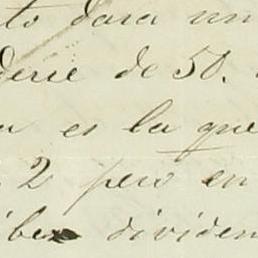 to dara un
derie de 50.
es la que
2 pero en
ibe dividen